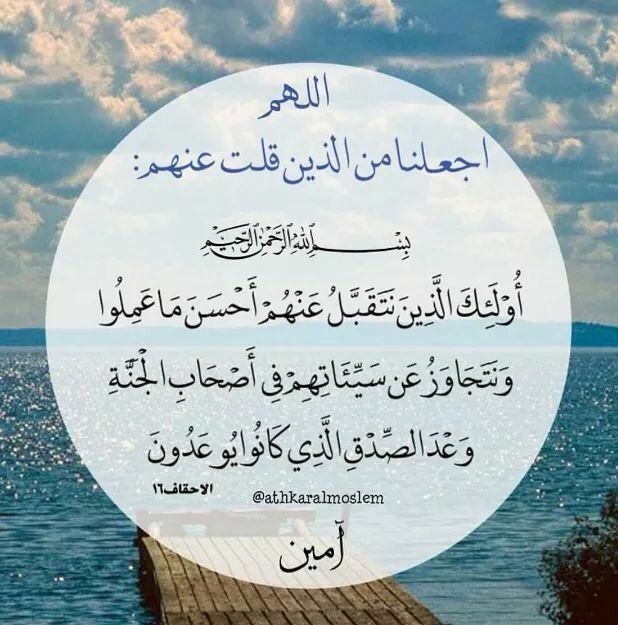 اللهم
اجعلنا من الذين قلت عنهم:
بِسْمِ ٱللَّهِ ٱلرَّحْمَٰنِ ٱلرَّحِيمِ
أُوْلَئِكَ الَّذِينَ نَتَقَبَّلُ عَنْهُمْ أَحْسَنَ مَا عَمِلُوا
وَنَتَجَاوَزُ عَن سَيِّئَاتِهِمْ فِي أَصْحَابِ الْجَنَّةِ
وَعْدَ الصِّدْقِ الَّذِي كَانُوا يُوعَدُونَ
الاحقاف١٦
@athkaralmoslem
آمين